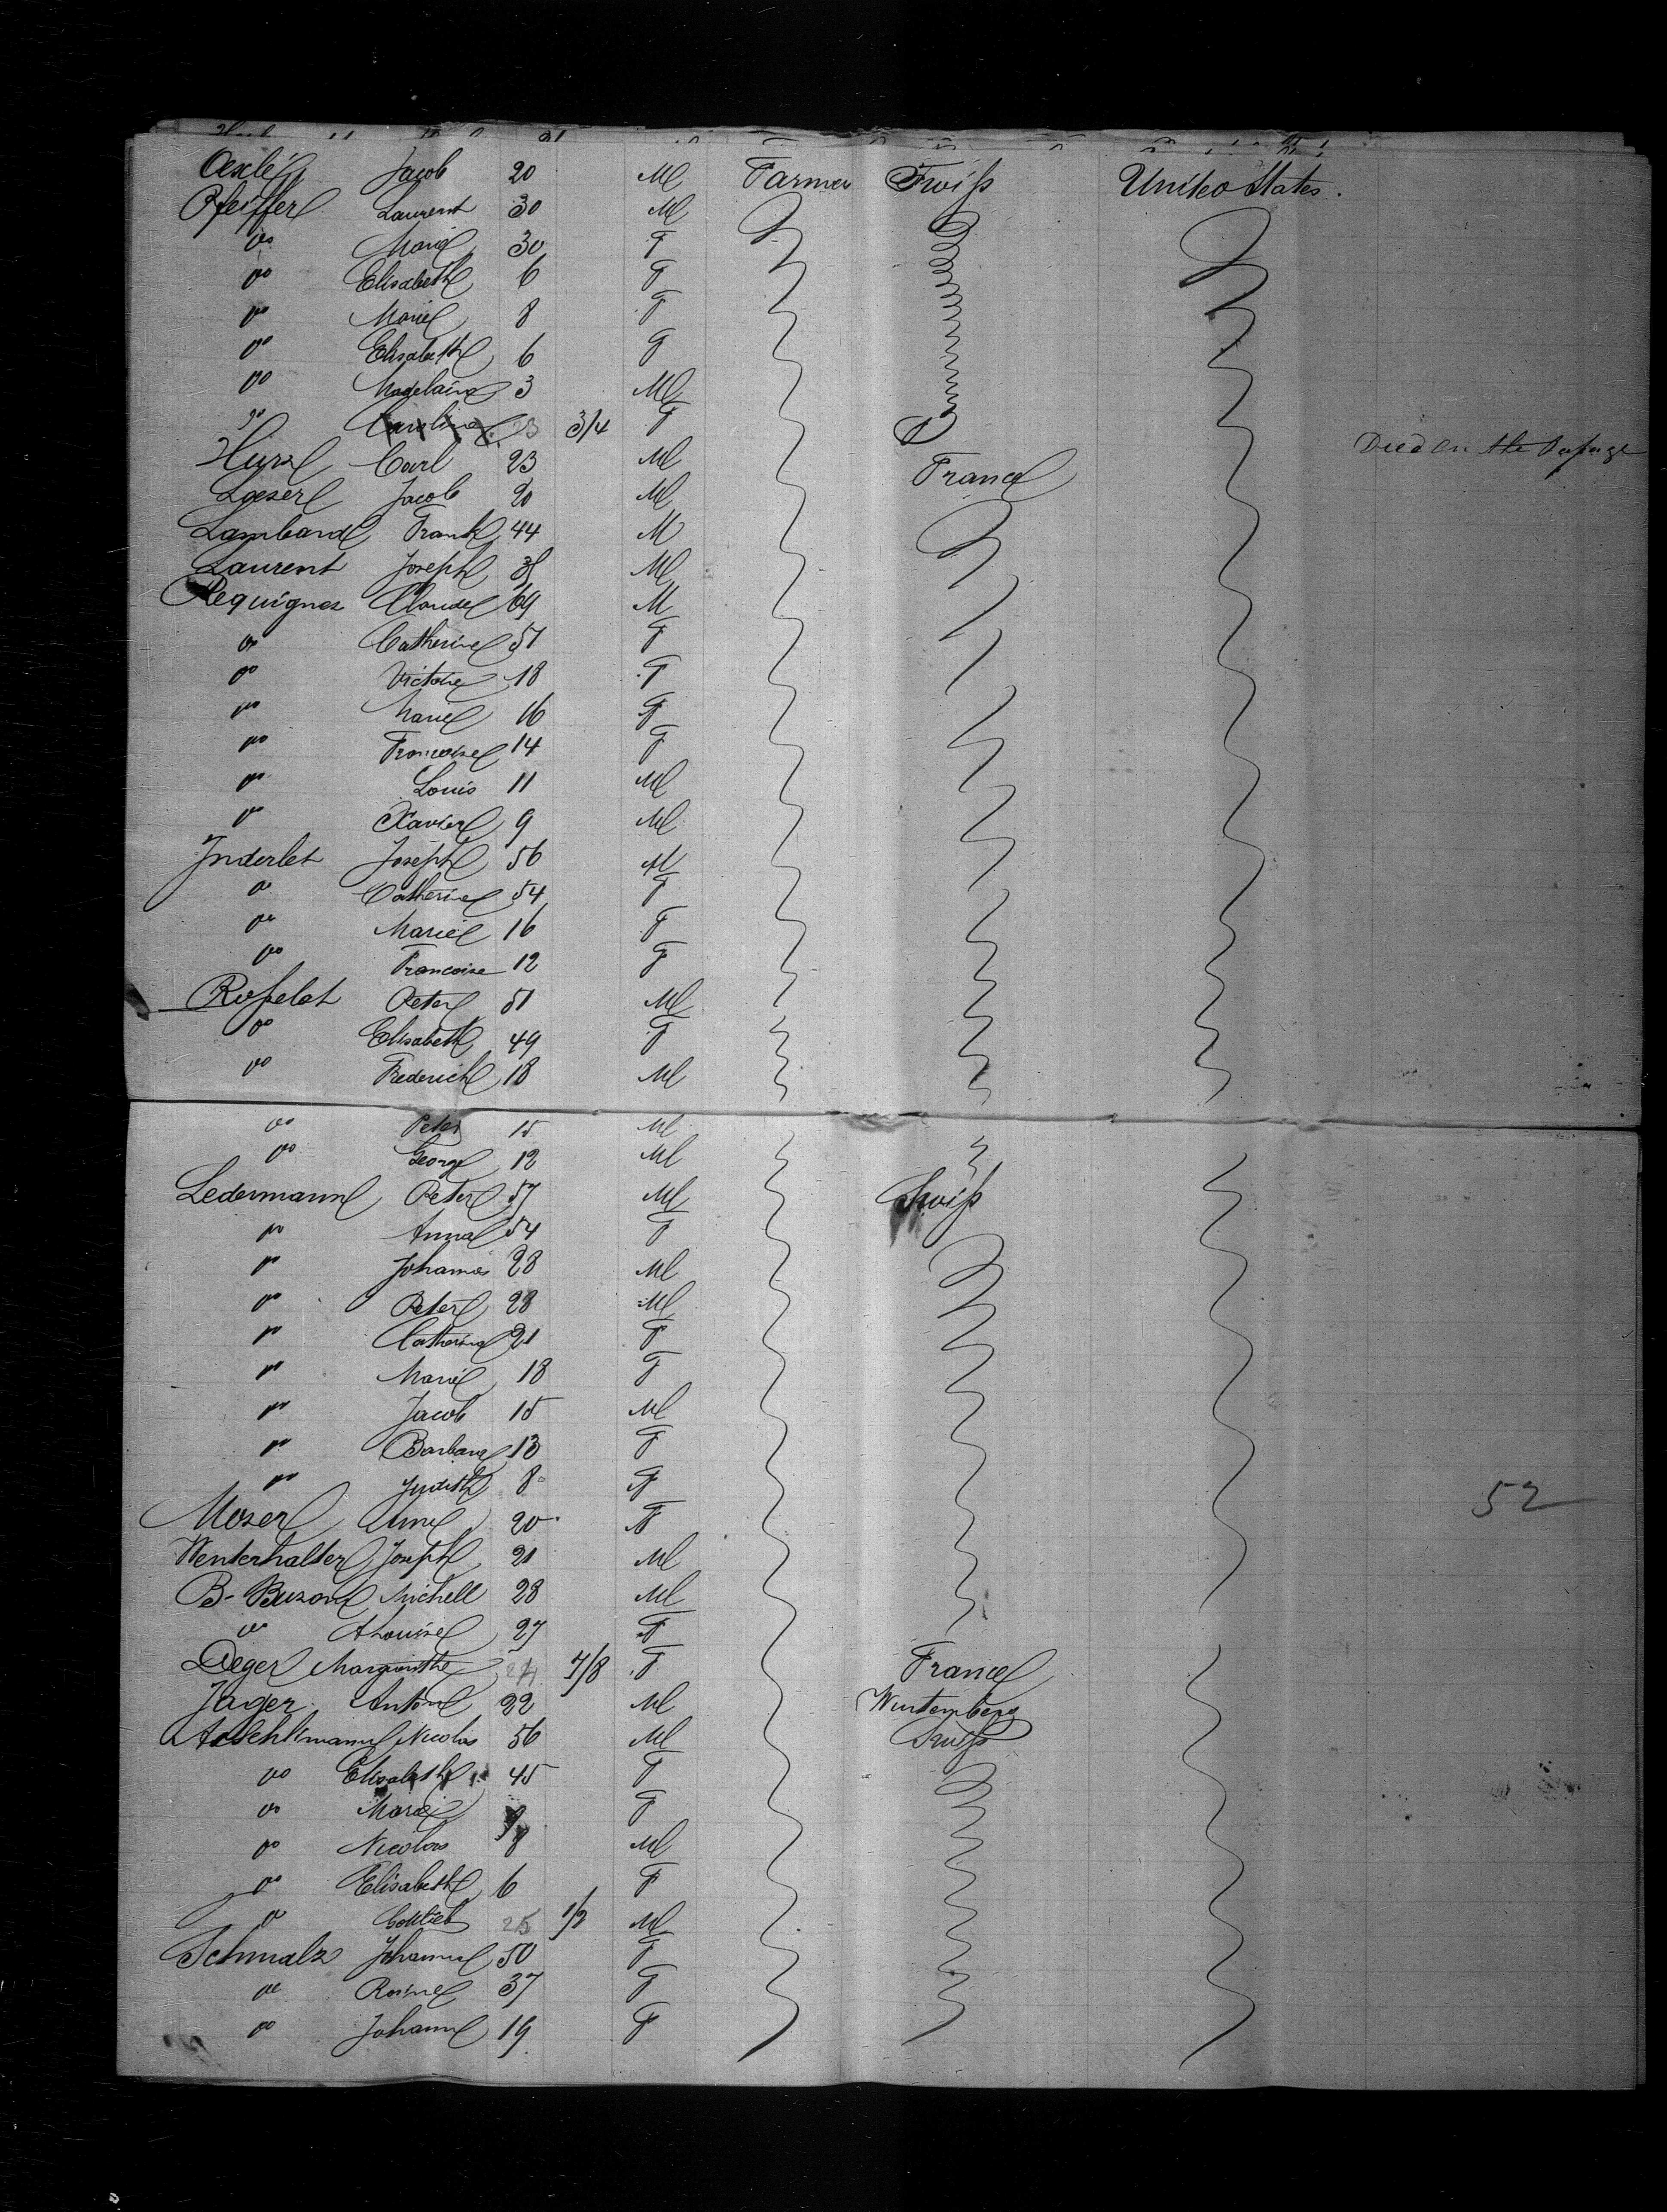 Oexle Jacob 20 M Farmer Swiss United States.
Pfeiffer Laurent 30 M
do Marie 30 F
do Elisabeth 6 F
do Marie 8 F
do Elisabeth 6 F
do Madelaine 3 M
do Caroline 3/4 F
Carl 23 M France Died on the Passage
Loeser Jacob 20 M
Lambard Frank 44 M
Laurent Joseph M
Requignot Claude 69 M
do Catherine 51 F
do Victoire 18 F
do Marie 16 F
do Francoise 14 F
do Louis 11 M
do Xavier 9 M
Inderlet Joseph 56 M
do Catherine 54 F
do Marie 16 F
do Francoise 12 F
Rosselet Peter 51 M
do Elisabeth 49 F
do Frederick 18 M
do Peter 15 M
do George 12 M
Ledermann Peter 57 M Swiss
do Anna 54 F
do Johannes 28 M
do Peter 28 M
do Catherina 21 F
do Marie 18 F
do Jacob 15 M
do Barbara 13 F
do Judith 8 F 52
Moser Anne 20 F
Wenterhalter Joseph 21 M
B-Buzon Michell 28 M
do A Louise 27 F
Deger Margurithe 24 7/8 F France
Jager Anton 22 M Wurtemberg
Aeschlimann Nicolas 56 M Swiss
do Elisabeth 45 F
do Marie F
do Nicolas 8 M
do Elisabeth 6 F
do Gottlieb 25 1/2 M
Schmalz Johann 50 F
do Rosine 37 F
do Johann 19 F